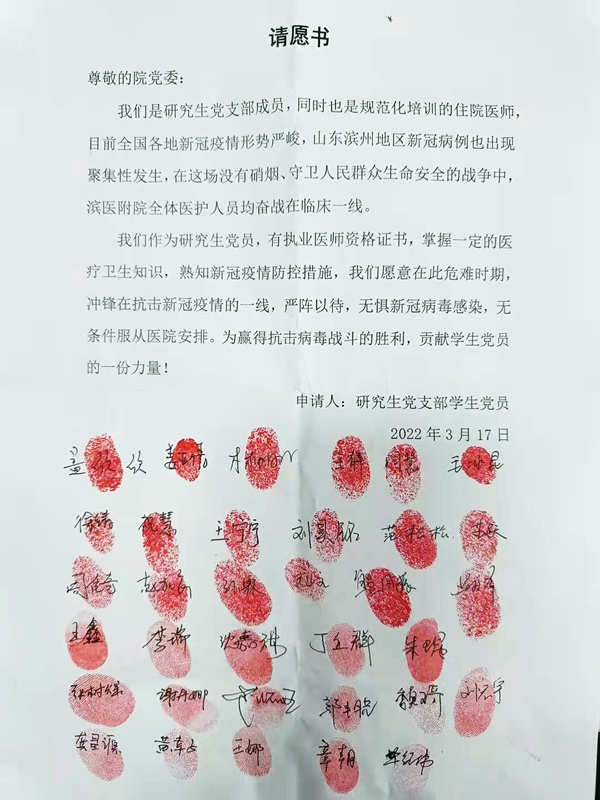 请愿书
尊敬的院党委：
我们是研究生党支部成员，同时也是规范化培训的住院医师，
目前全国各地新冠疫情形势严峻，山东滨州地区新冠病例也出现
聚集性发生，在这场没有硝烟、守卫人民群众生命安全的战争中，
滨医附院全体医护人员均奋战在临床一线。
我们作为研究生党员，有执业医师资格证书，掌握一定的医
疗卫生知识，熟知新冠疫情防控措施，我们愿意在此危难时期，
冲锋在抗击新冠疫情的一线，严阵以待，无惧新冠病毒感染，无
条件服从医院安排。为赢得抗击病毒战斗的胜利，贡献学生党员
的一份力量！
申请人：研究生党支部学生党员
2022年3月17日
孟欣欣
徐倩 祝慧 王宁宁 刘昊铭 范松松
王鑫 李瑞 丁立群 朱琨
王娜 章朝